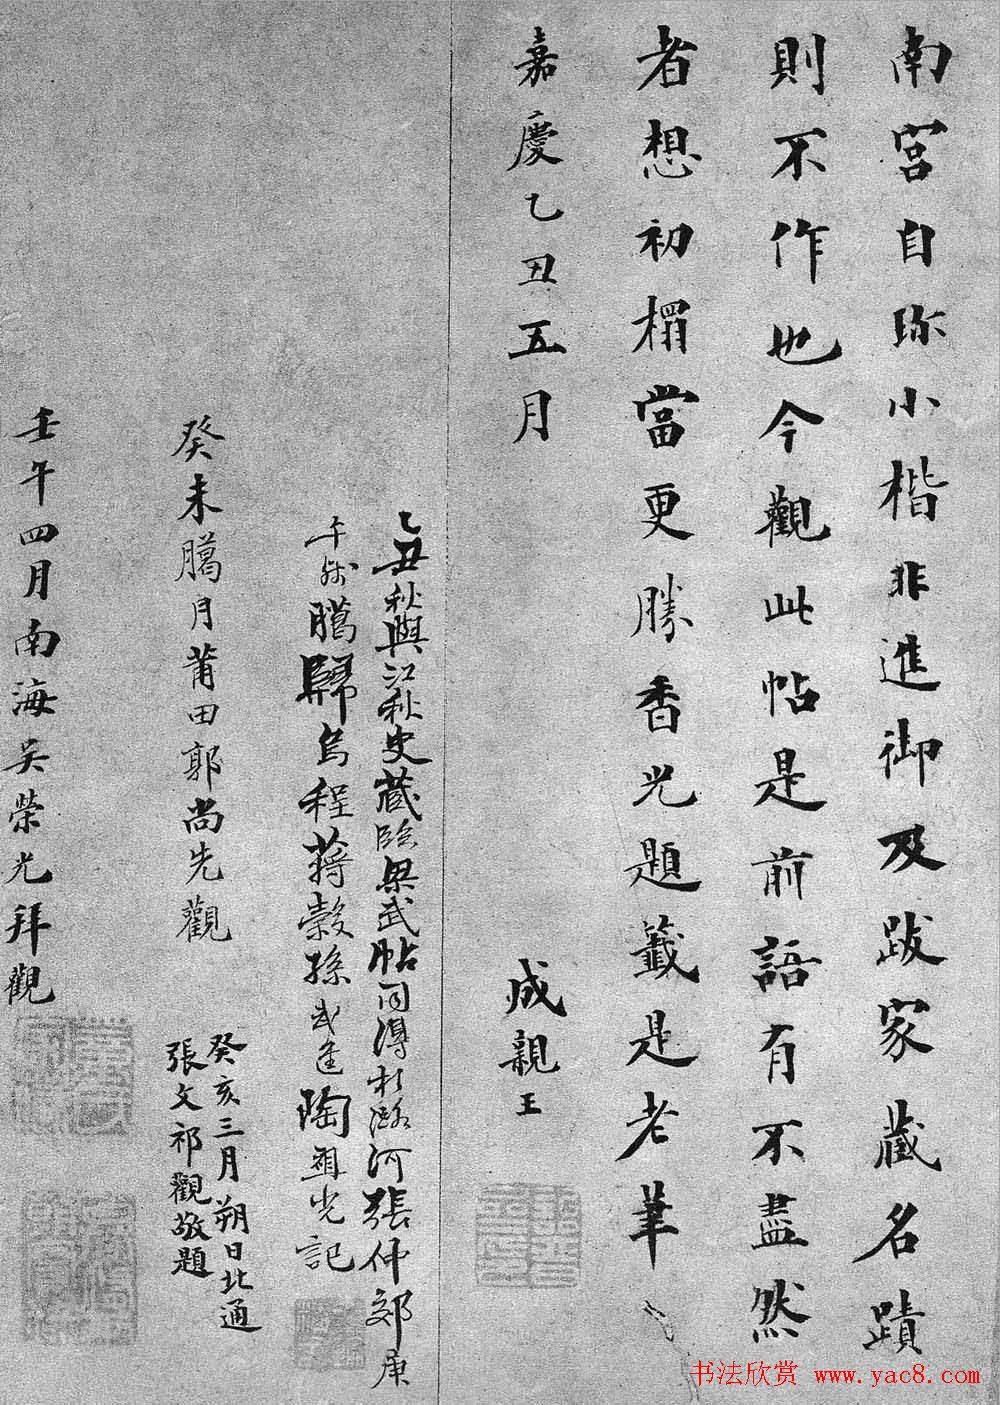 南宮自珎小楷非進御及跋家藏名蹟
則不作也今觀此帖是前語有不盡然
者想初榻當更勝香光題籤是老筆
嘉慶乙丑五月
成親王
乙丑秋與江秋史藏臨梁武帖同得於潞河張仲郊庚
午殘臈歸烏程蔣榖孫武進陶祖光記
癸未臈月莆田郭尚先觀
癸亥三月朔日北通
張文祁觀敬題
壬午四月南海吴榮光拜觀
书法欣赏 www.yac8.com